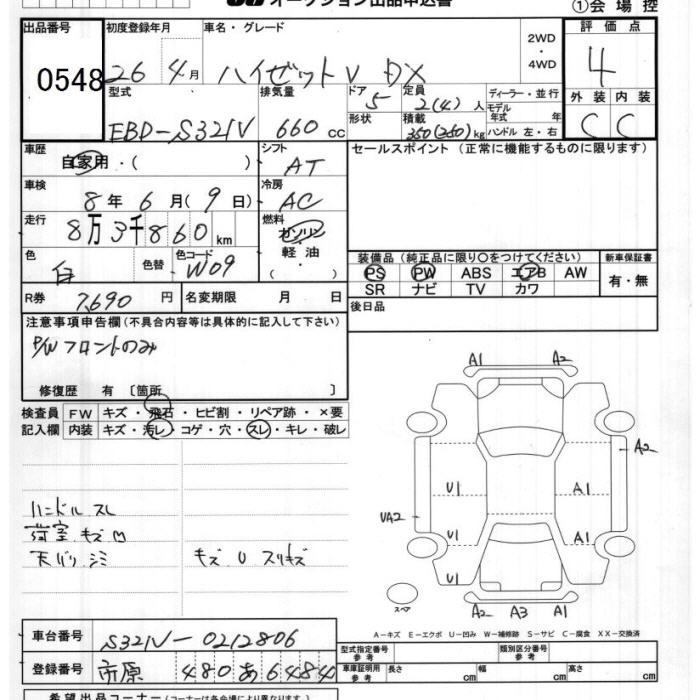 オークション出品申込書 ①会場控
出品番号 初度登録年月 車名・グレード 2WD・4WD 評価点
0548 26 4月 ハイゼットV DX 4
型式 排気量 ドア 5 定員 2(4)人 ディーラー・並行 モデル年式 年 外装 内装
EBD-S321V 660cc 形状 積載 350(250)kg ハンドル 左・右 C C
車歴 自家用・( ) シフト AT セールスポイント (正常に機能するものに限ります)
車検 8年6月(9日) 冷房 AC
走行 8万3千860km 燃料 ガソリン 軽油 ( )
色 白 色替 色コード W09
装備品 (純正品に限り○をつけてください) 新車保証書
PS PW ABS エアB AW 有・無
SR ナビ TV カワ
R券 7,690円 名変期限 月 日 後日品
注意事項申告欄 (不具合内容等は具体的に記入して下さい)
P/Wフロントのみ
修復歴 有 〔箇所 〕
検査員 FW キズ・飛石・ヒビ割・リペア跡・×要
記入欄 内装 キズ・汚レ・コゲ・穴・スレ・キレ・破レ
A1 A2
A2
U1 A1
UA2
U1 A1
U1
A2 A3 A1
スペア
ハンドル スレ
荷室 キズ M
天バリ シミ キズ U スリキズ
A-キズ E-エクボ U-凹み W-補修跡 S-サビ C-腐食 XX-交換済
車台番号 S321V-0212806
登録番号 市原 480 あ 6484
型式指定番号 参考 類別区分番号 参考
車庫証明用 参考 長さ cm 幅 cm 高さ cm
希望出品コーナー (コーナーは各会場により異なります。)